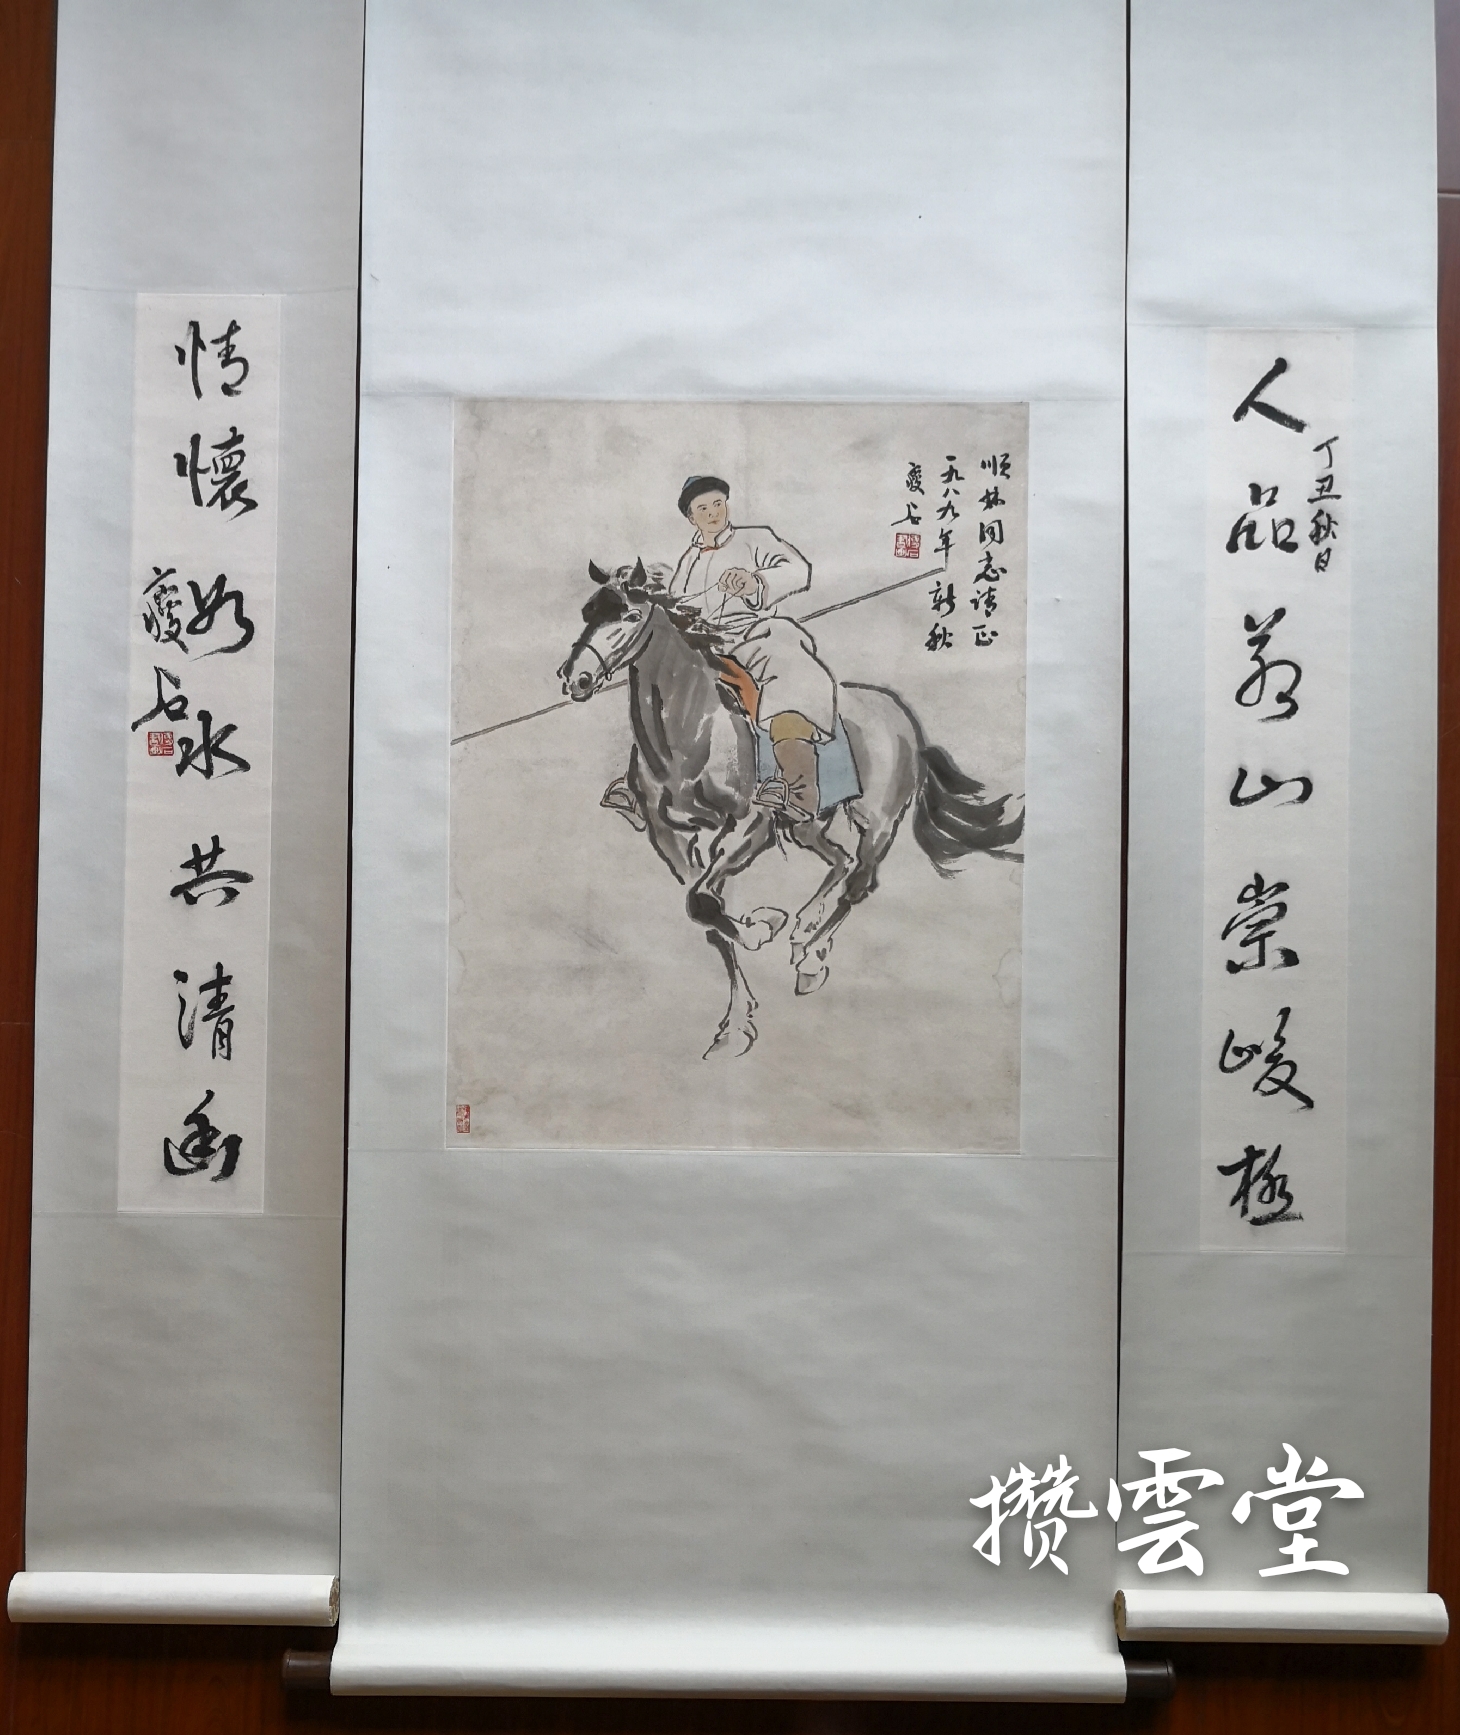 人品若山崇峻極
丁丑秋日
順林同志請正
一九八九年新秋
瘦石
情懷如水共清幽
瘦石
攒雲堂